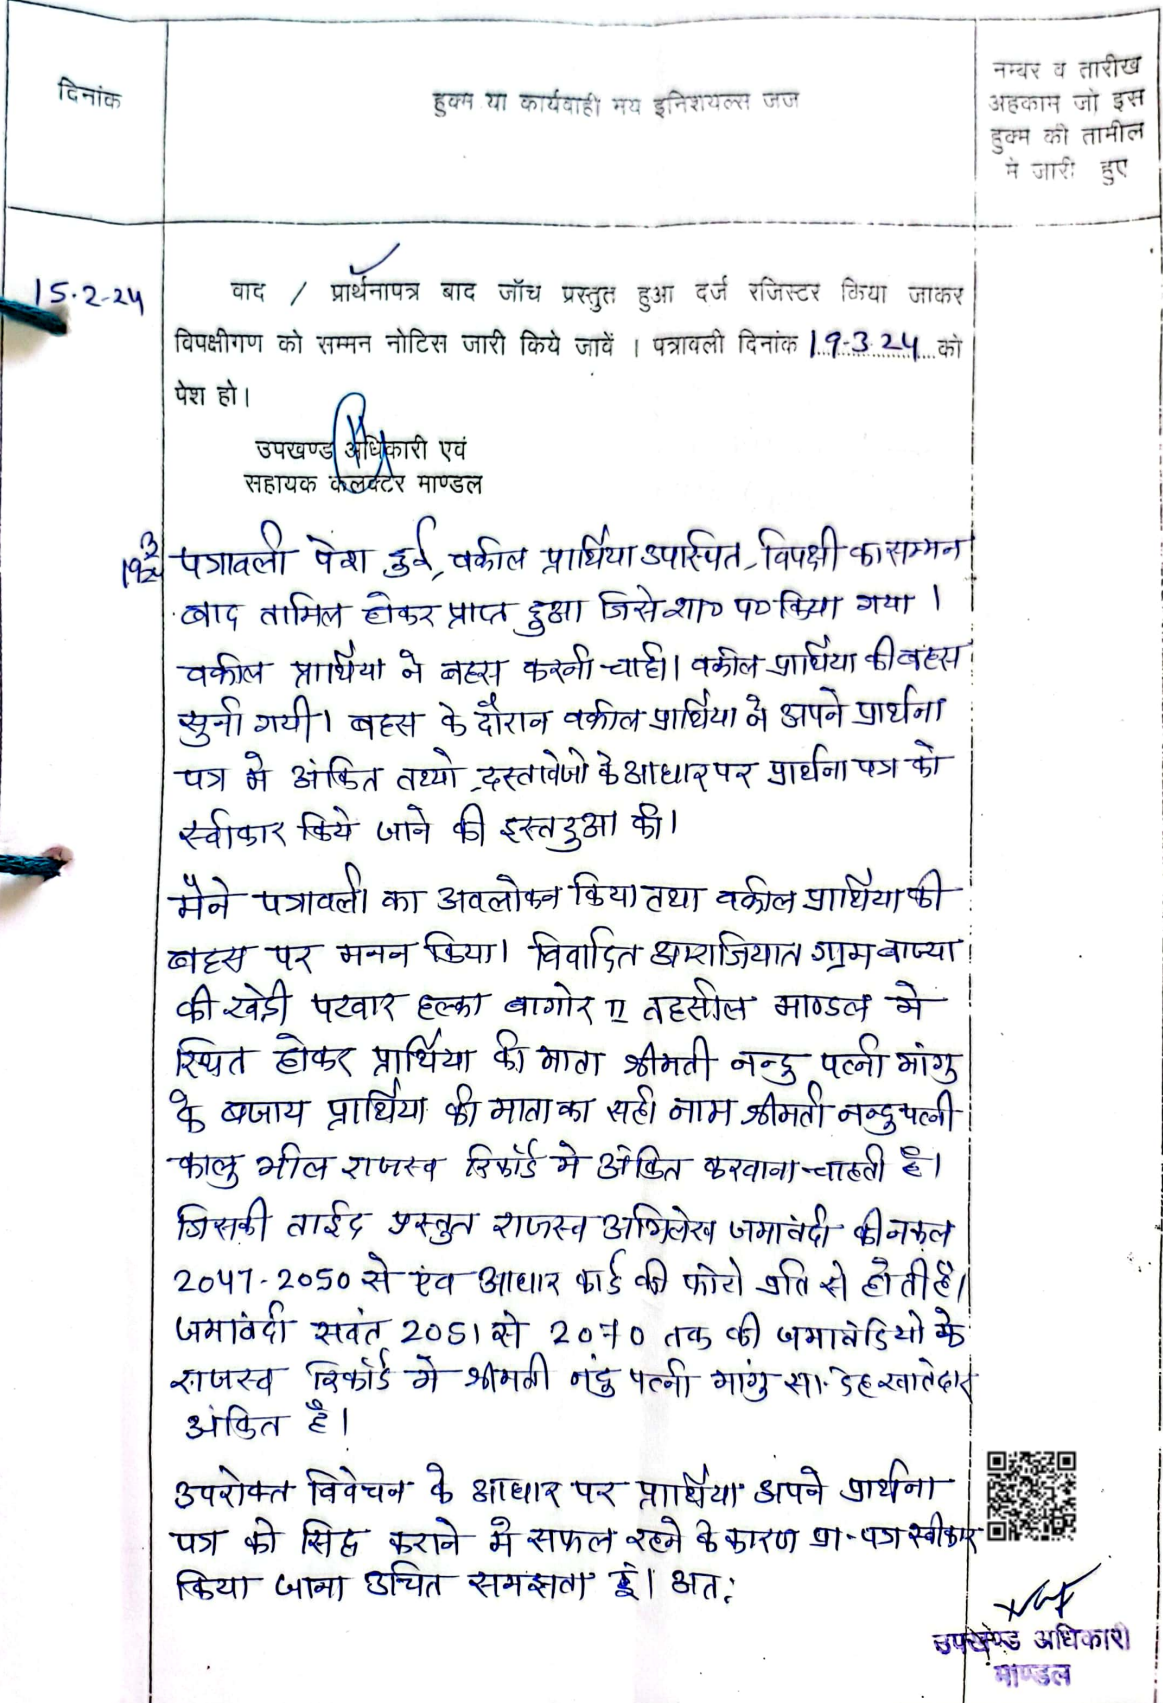 दिनांक
हुक्म या कार्यवाही मय इनिशयल्स जज
नम्बर व तारीख
अहकाम जो इस
हुक्म की तामील
मे जारी हुए
15.2-24
वाद / प्रार्थनापत्र बाद जॉच प्रस्तुत हुआ दर्ज रजिस्टर किया जाकर
विपक्षीगण को सम्मन नोटिस जारी किये जावें । पत्रावली दिनांक 19-3-24 को
पेश हो।
उपखण्ड अधिकारी एवं
सहायक कलक्टर माण्डल
19/3/24
पत्रावली पेश हुई, वकील प्रार्थिया उपस्थित, विपक्षी का सम्मन
बाद तामिल होकर प्राप्त हुआ जिसे शा० प० किया गया ।
वकील प्रार्थिया ने बहस करनी चाही। वकील प्रार्थिया की बहस
सुनी गयी। बहस के दौरान वकील प्रार्थिया ने अपने प्रार्थना
पत्र मे अंकित तथ्यो, दस्तावेजो के आधार पर प्रार्थना पत्र को
स्वीकार किये जाने की इस्तदुआ की।
मैने पत्रावली का अवलोकन किया तथा वकील प्रार्थिया की
बहस पर मनन किया। विवादित आराजियात ग्राम बाज्या
की खेड़ी पटवार हल्का बागोर II तहसील माण्डल मे
स्थित होकर प्रार्थिया की माता श्रीमती नन्दु पत्नी मांगु
के बजाय प्रार्थिया की माता का सही नाम श्रीमती नन्दु पत्नी
कालु भील राजस्व रिकॉर्ड मे अंकित करवाना चाहती है।
जिसकी ताईद प्रस्तुत राजस्व अभिलेख जमाबंदी की नकल
2047-2050 से एंव आधार कार्ड की फोटो प्रति से होती है।
जमाबंदी सवंत 2051 से 2070 तक की जमाबंदियो के
राजस्व रिकॉर्ड मे श्रीमती नंदु पत्नी मांगु सा. देह खातेदार
अंकित है।
उपरोक्त विवेचन के आधार पर प्रार्थिया अपने प्रार्थना
पत्र को सिद्ध कराने मे सफल रहने के कारण प्रा. पत्र स्वीकार
किया जाना उचित समझता हूं। अत:
उपखण्ड अधिकारी
माण्डल